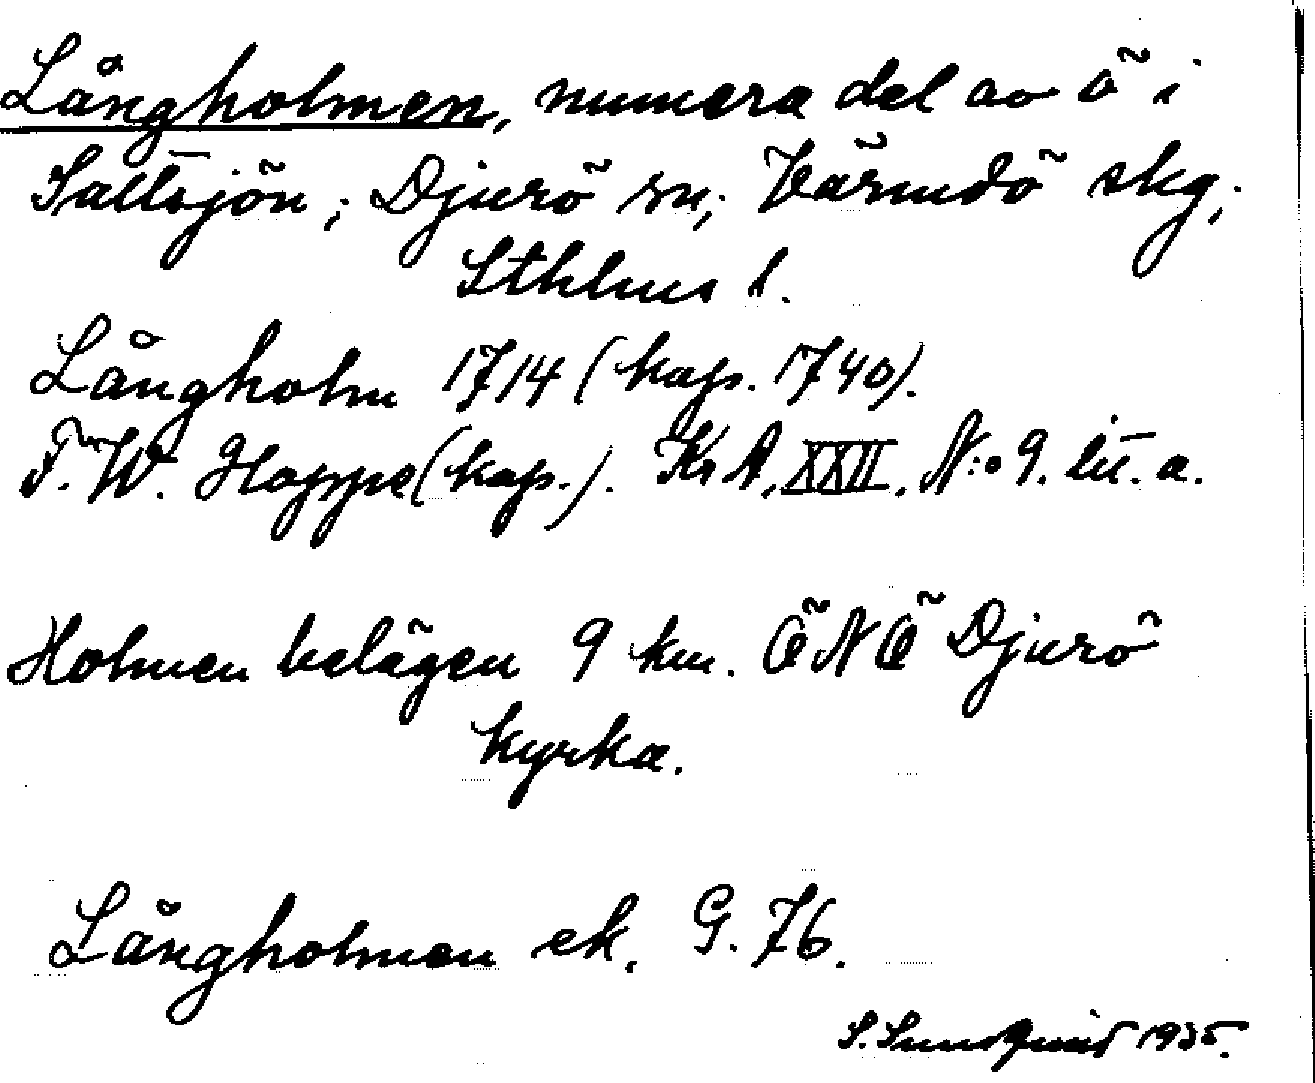 Långholmen, numera del av ö i
Saltsjön; Djurö sn; Värmdö skg;
Sthlms l.
Långholm 1714 (kap. 1740).
F. W. Hoppe (kap.). KrA, XXII, N:o 9. lit. a.
Holmen belägen 9 km. ÖNÖ Djurö
kyrka.
Långholmen ek. G. 76.
S. Sundquist 1935.